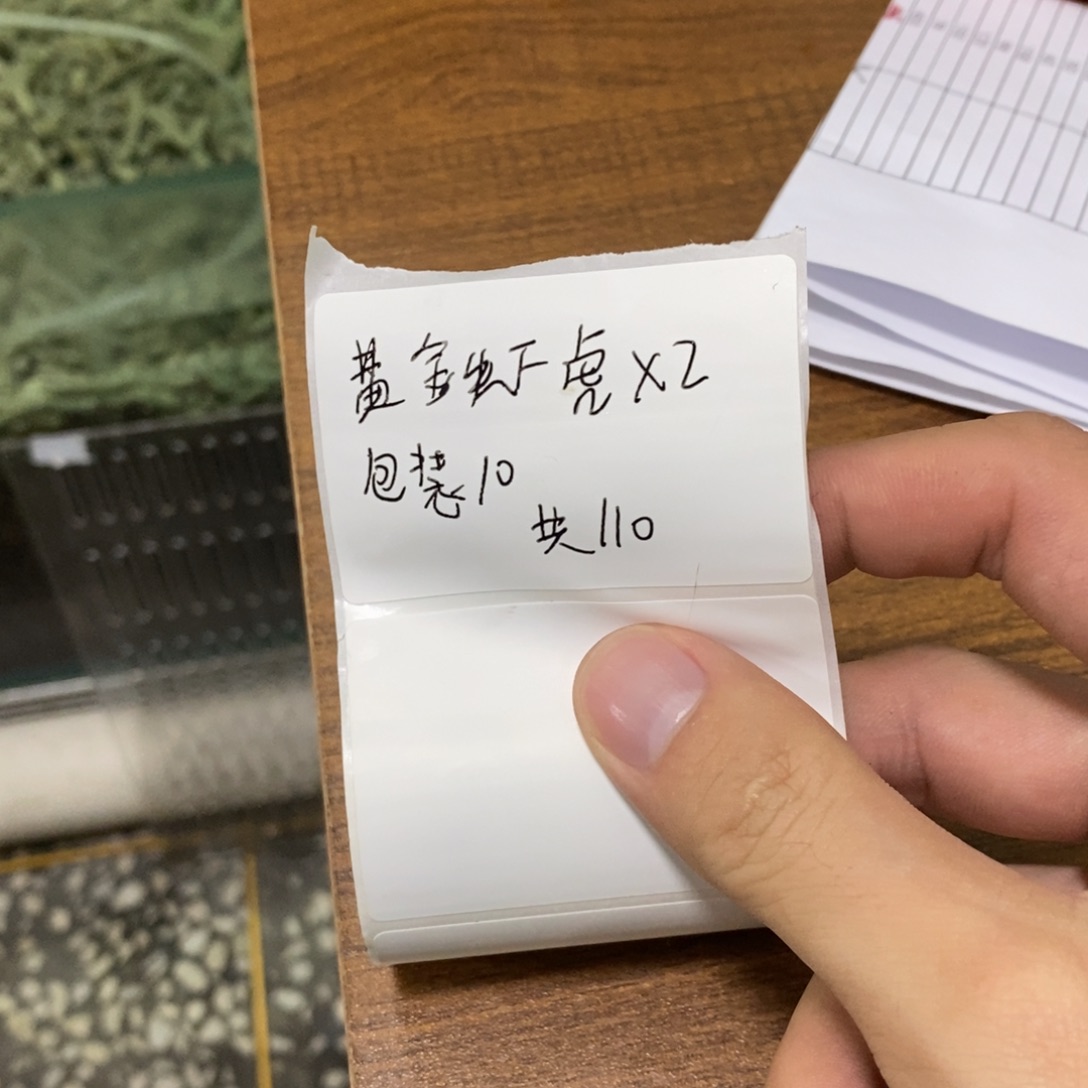 黄金虾虎X2
包装10
共110